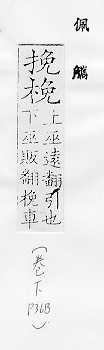 佩觿
挽梚
上巫遠翻引也
下巫販翻挽車
(卷下
P36B)